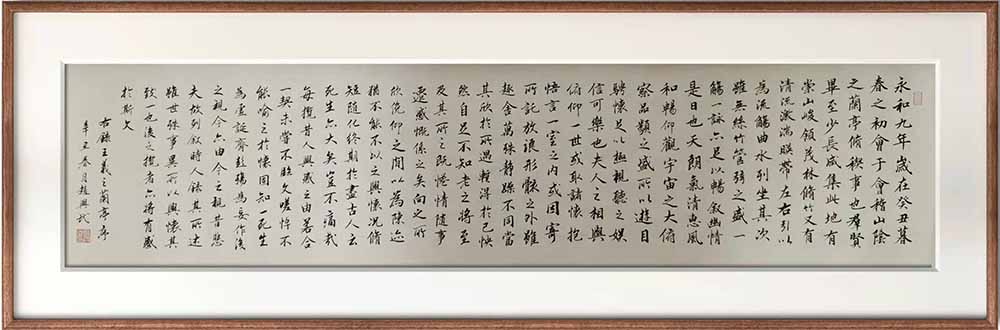 永和九年歲在癸丑暮
春之初會于會稽山陰
之蘭亭脩稧事也群賢
畢至少長咸集此地有
崇山峻領茂林脩竹又有
清流激湍暎帶左右引以
為流觴曲水列坐其次
雖無絲竹管弦之盛一
觴一詠亦足以暢敘幽情
是日也天朗氣清惠風
和暢仰觀宇宙之大俯
察品類之盛所以遊目
騁懷足以極視聽之娛
信可樂也夫人之相與
俯仰一世或取諸懷抱
悟言一室之内或因寄
所託放浪形骸之外雖
趣舍萬殊靜躁不同當
其欣於所遇暫得於己快
然自足不知老之將至
及其所之既惓情隨事
遷感慨係之矣向之所
欣俛仰之間以為陳迹
猶不能不以之興懷況脩
短隨化終期於盡古人云
死生亦大矣豈不痛哉
每攬昔人興感之由若合
一契未嘗不臨文嗟悼不
能喻之於懷固知一死生
為虛誕齊彭殤為妄作後
之視今亦由今之視昔悲
夫故列敘時人錄其所述
雖世殊事異所以興懷其
致一也後之攬者亦將有感
於斯文
右錄王羲之蘭亭序
辛丑春月趙興武